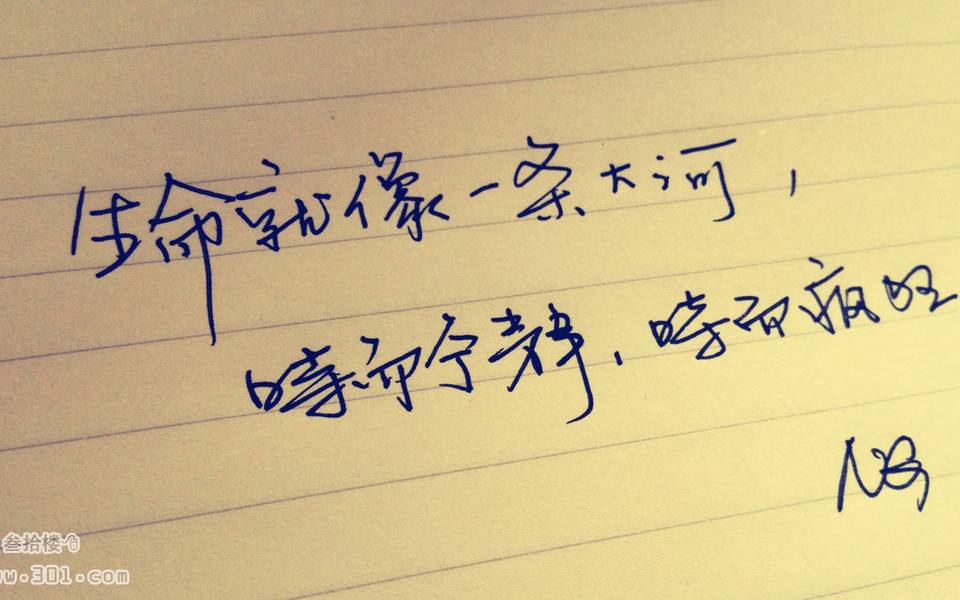 生命就像一条大河，
时而宁静，时而疯狂
叁拾楼
www.301.com